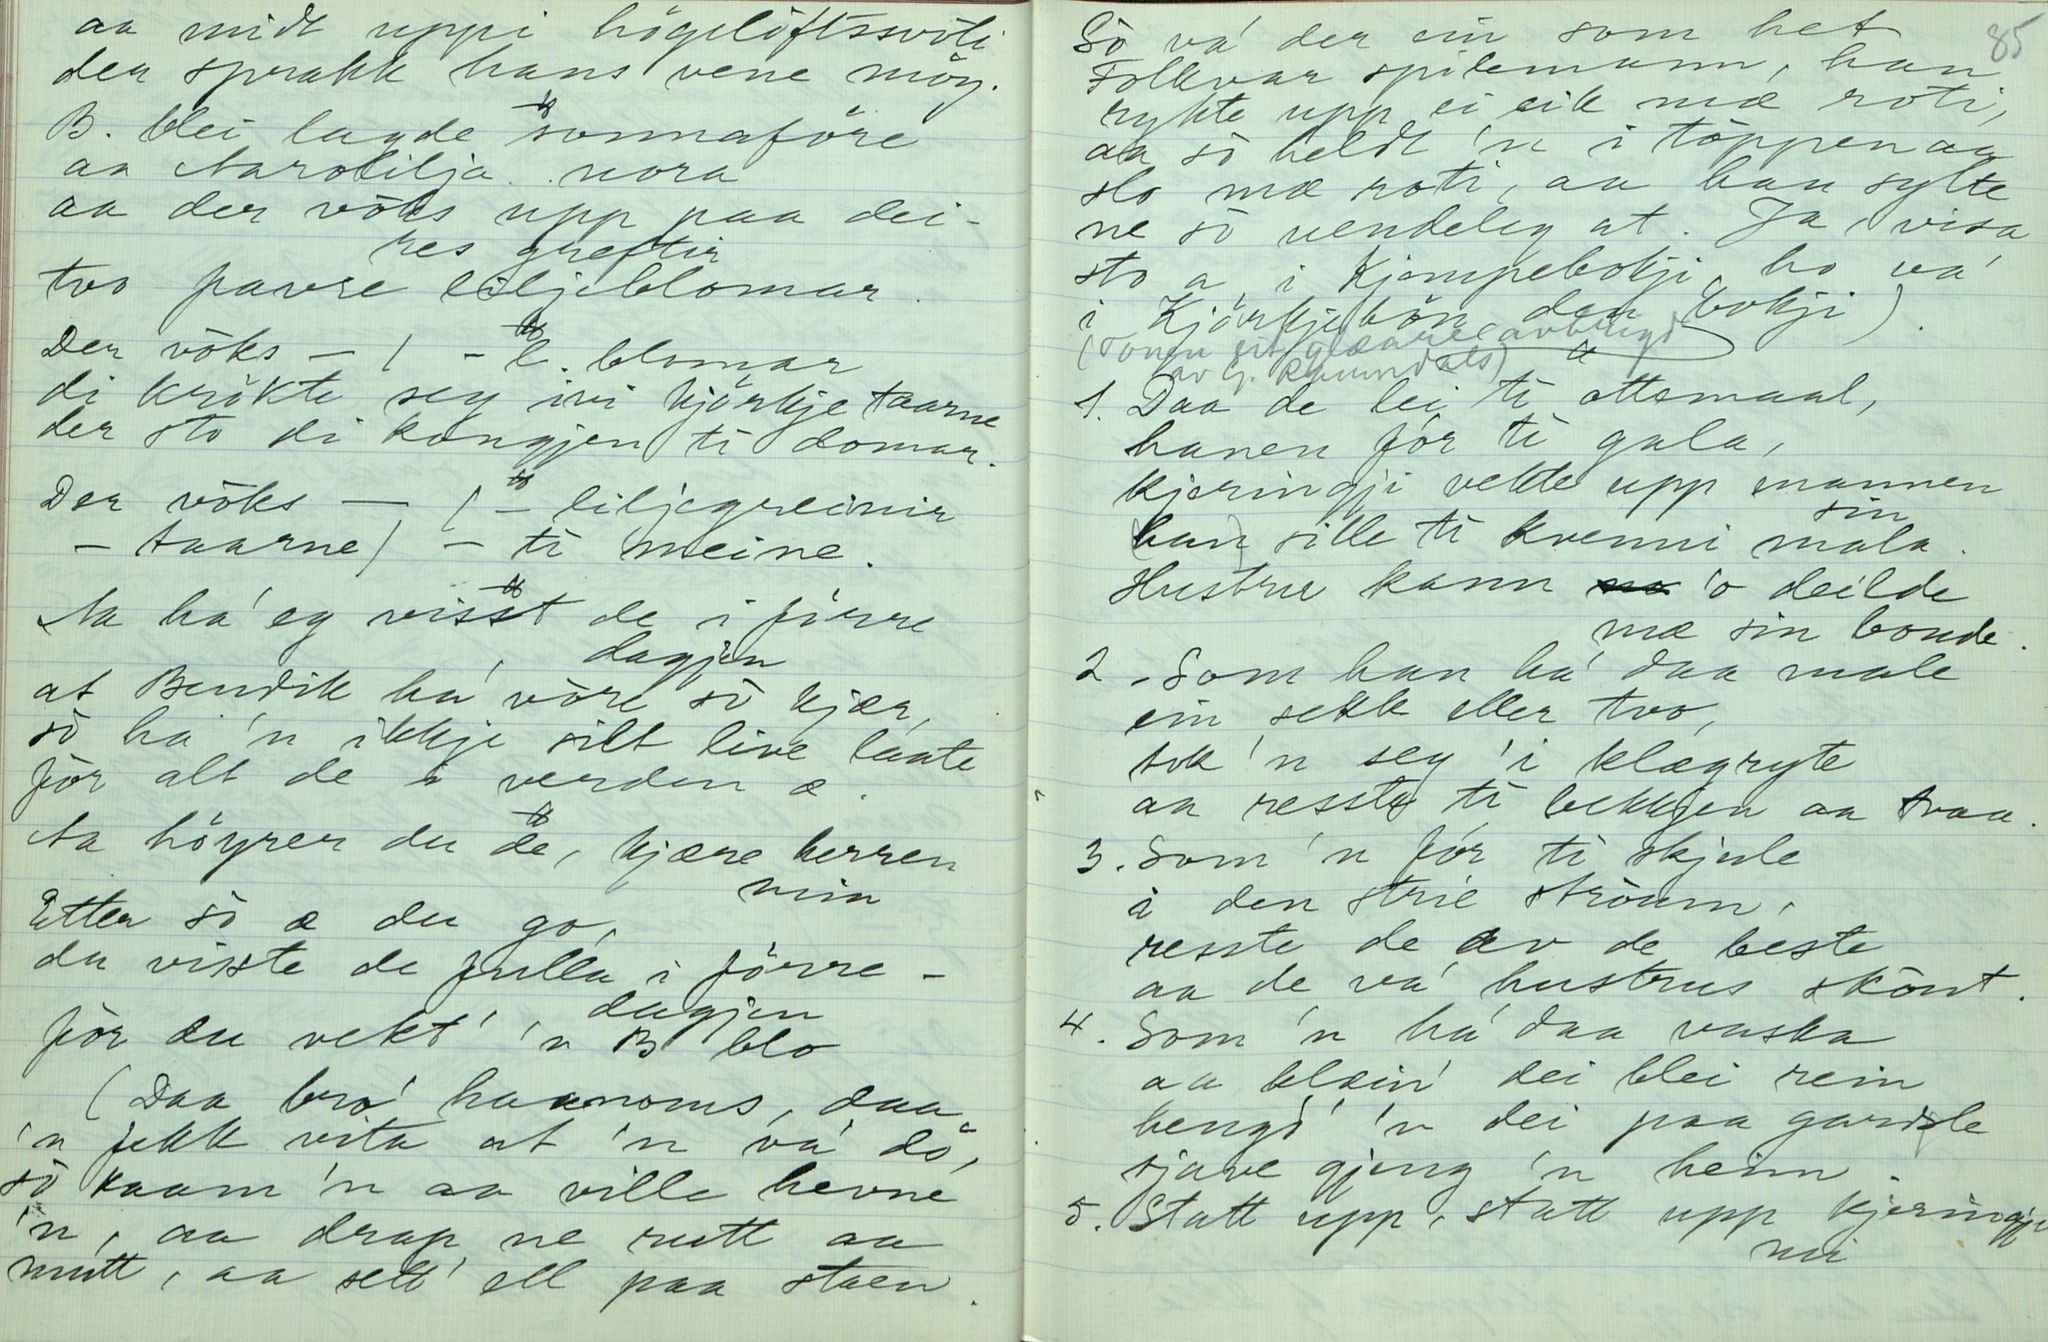 aa midt uppi högelöftssvöli
der sprakk hans vene möy.
B. blei lagde sunnaföre
aa Aarolilja nora
aa der vöks upp paa dei-
res greftir
two favre liljeblomar.
Der vöks — / – l. blomar
di krökte seg ivi kjörkjetaarne
der sto di kongjen ti domar.
Der vöks — / – liljegreinir
– taarne / – ti meine.
Aa ha' eg visst de i förre
dagjen
at Bendik ha' vöre sö kjær,
sö ha 'n ikkje silt live laate
för alt de i verden æ.
Aa höyrer du de, kjære herren
min
Etter sö æ du go,
du visste de fulla i förre-
dagjen
för du vekt' 'n B blo
(Daa bro' haanoms, daa
'n fekk vita at 'n va' dö,
sö kaam 'n aa ville hevne
'n, aa drap ne rutt aa
mutt, aa sett' ell paa staen.
85
Sö va' der ein som het
Folkvar spilemann, han
rykte upp ei eik mæ roti,
aa sö heldt 'n i töppen aa
slo mæ roti, aa han sylte
ne sö uendeleg at. Ja, visa
sto a i Kjempebokji, ho va'
i Kjörkjebön den bokji).
(Tonen eit avbrigd
av G. )
1. Daa de lei ti ottemaal,
hanen för ti gala,
kjeringji vekte upp mannen
sin
han sille ti kvenni mala.
Hustru kann 'o deilde
mæ sin bonde.
2. Som han ha' daa male
ein sekk eller two,
tok 'n seg 'i klægryte
aa resste ti bekkjen aa tvaa.
3. Som 'n för ti skjule
i den strie ströum,
resste de av de beste
aa de va' hustrus skönt.
4. Som 'n ha' daa vaska
aa klæin' dei blei rein
hengd' 'n dei paa gardsle
sjave gjeng 'n heim.
5. Statt upp, statt upp kjeringji
mi